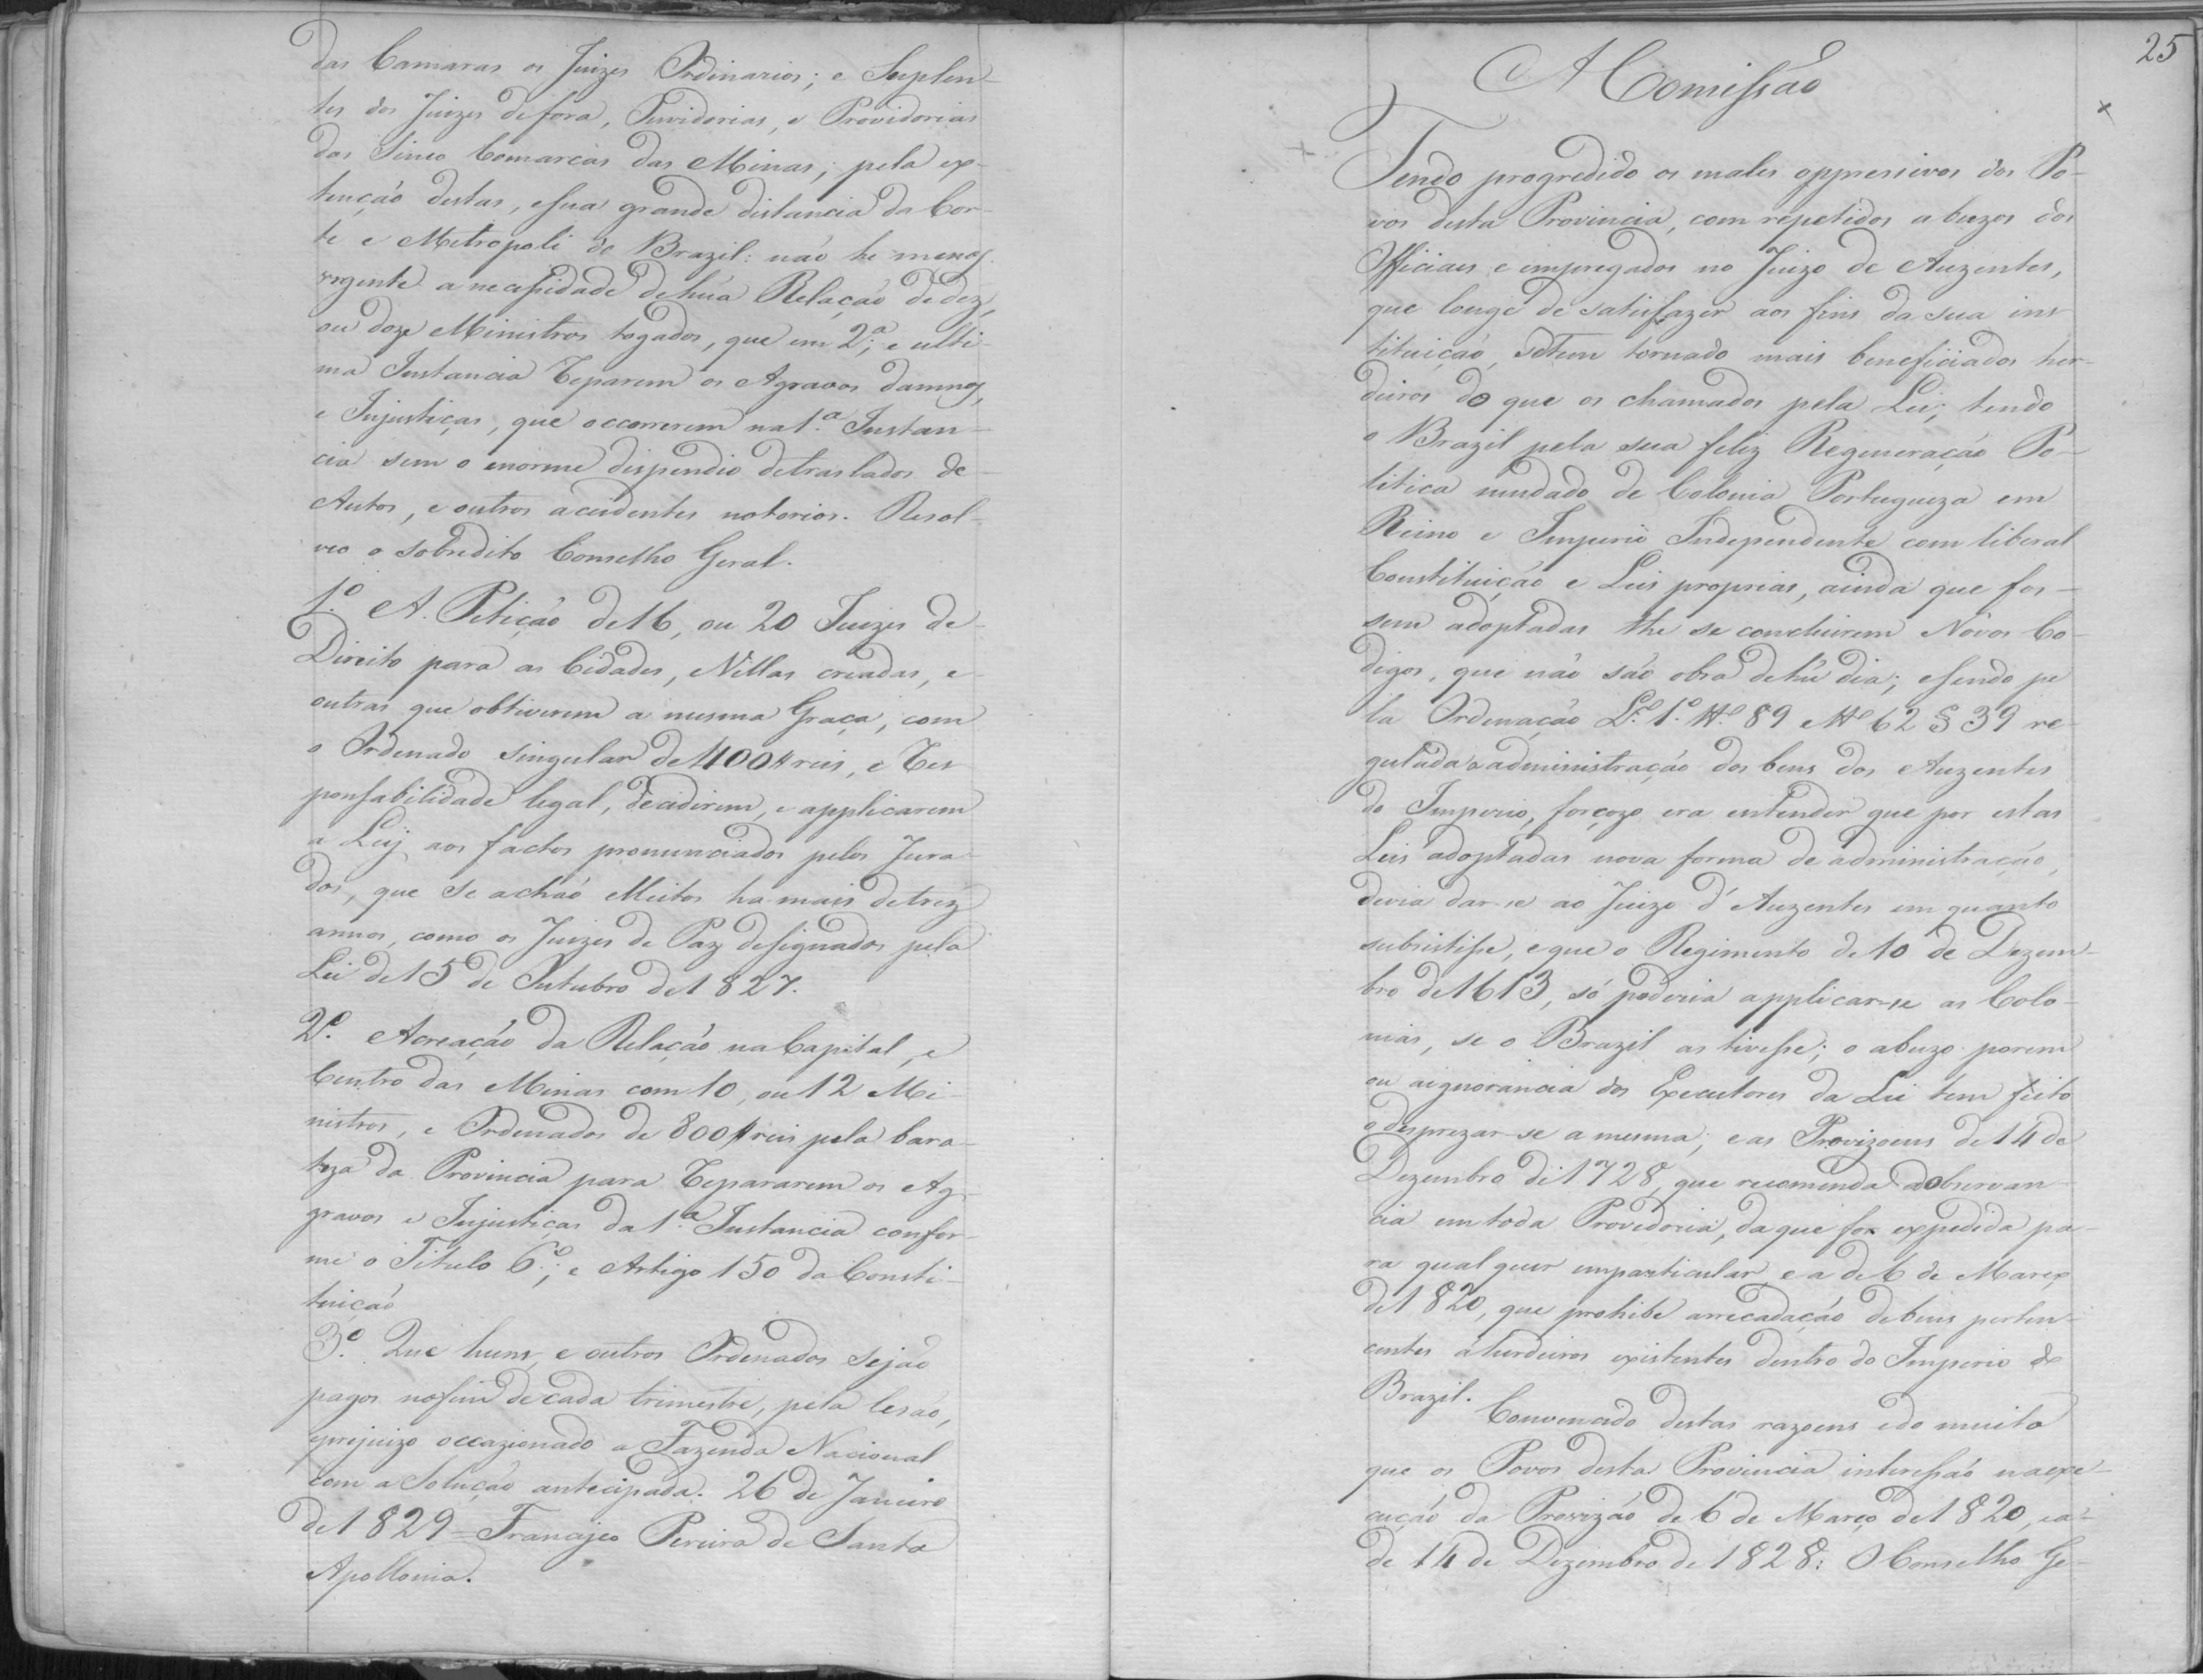 das Camaras os Juizes Ordinarios; e Suplen-
tes dos Juizes de fora, Ouvidorias, e Providorias
das Sinco Comarcas das Minas; pela ex-
tenção destas, e sua grande distancia da Cor-
te e Metropoli do Brazil: não he menos
vrgente a necessidade de húa Relação de dez,
ou doze Ministros togados, que em 2ª; e ulti-
ma Instancia reparem os Agravos damnos,
e Injustiças, que occorrerem na 1.ª Instan-
cia sem o enorme dispendio de traslados de
Autos, e outros accidentes notorios. Resol-
veo o sobredito Conselho Geral.
1.º A Petição de 16, ou 20 Juizes de
Direito para as Cidades, Villas creadas, e
outras que obtiverem a mesma Graça, com
o Ordenado singular de 400$reis, e res
ponsabilidade legal, decidirem, e applicarem
a Ley aos factos pronunciados pelos Jura-
dos, que se achão eleitos ha mais de trez
annos, como os Juizes de Paz designados pela
Lei de 15 de Outubro de 1827.
2º. A creação da Relação na Capital, e
Centro das Minas com 10, ou 12 Mi-
nistros, e Ordenados de 800$reis pela bara-
teza da Provincia para repararem os Ag-
gravos e Injustiças da 1.ª Instancia confor-
me o Titulo 6º.; e Artigo 150 da Consti-
tuição
3º. Que huns, e outros Ordenados sejão
pagos no fim de cada trimestre, pela lesão,
e prejuizo occazionado a Fazenda Nacional
com a solução antecipada. 26 de Janeiro
de 1829 = Francisco Pereira de Santa
Apollonia.
25
A Comissão
Tendo progredido os males oppressivos dos Po-
vos desta Provincia, com repetidos abuzos dos
Officiaes e empregados no Juizo de Auzentes,
que longe de satisfazer aos fins da sua ins
tituição, se tem tornado mais beneficiados her-
deiros do que os chamados pela Lei; tendo
o Brazil pela sua feliz Regeneração Po-
litica mudado de Colonia Portugueza em
Reino e Imperio Independente com liberal
Constituição e Leis proprias, ainda que fos-
sem adoptadas the se concluirem Novos Co-
digos, que não são obra de hú dia; e sendo pe
la Ordenação L.º 1.º tt.º 89 e tt.º 62 § 39 re-
gulada a administração dos bens dos Auzentes
do Imperio, forçozo era entender que por estas
Leis adoptadas nova forma de administração,
devia dar-se ao Juizo d'Auzentes em quanto
subsistisse, e que o Regimento de 10 de Dezem-
bro de 1613, só poderia applicar-se as Colo-
nias, se o Brazil as tivesse; o abuzo porem
ou a ignorancia dos Executores da Lei tem feito
o desprezar-se a mesma; e as Provizoens de 14 de
Dezembro de 1728, que recomenda a observan-
cia em toda Provedoria, da que for expedida pa-
ra qual quer em particular, e a de 6 de Março
de 1820, que prohibe arrecadação de bens perten-
centes á herdeiros existentes dentro do Imperio do
Brazil.
Convencido destas razoens e do muito
que os Povos desta Provincia interessão na exe-
cução da Provizão de 6 de Março de 1820, e a
de 14 de Dezembro de 1828: O Conselho Ge-